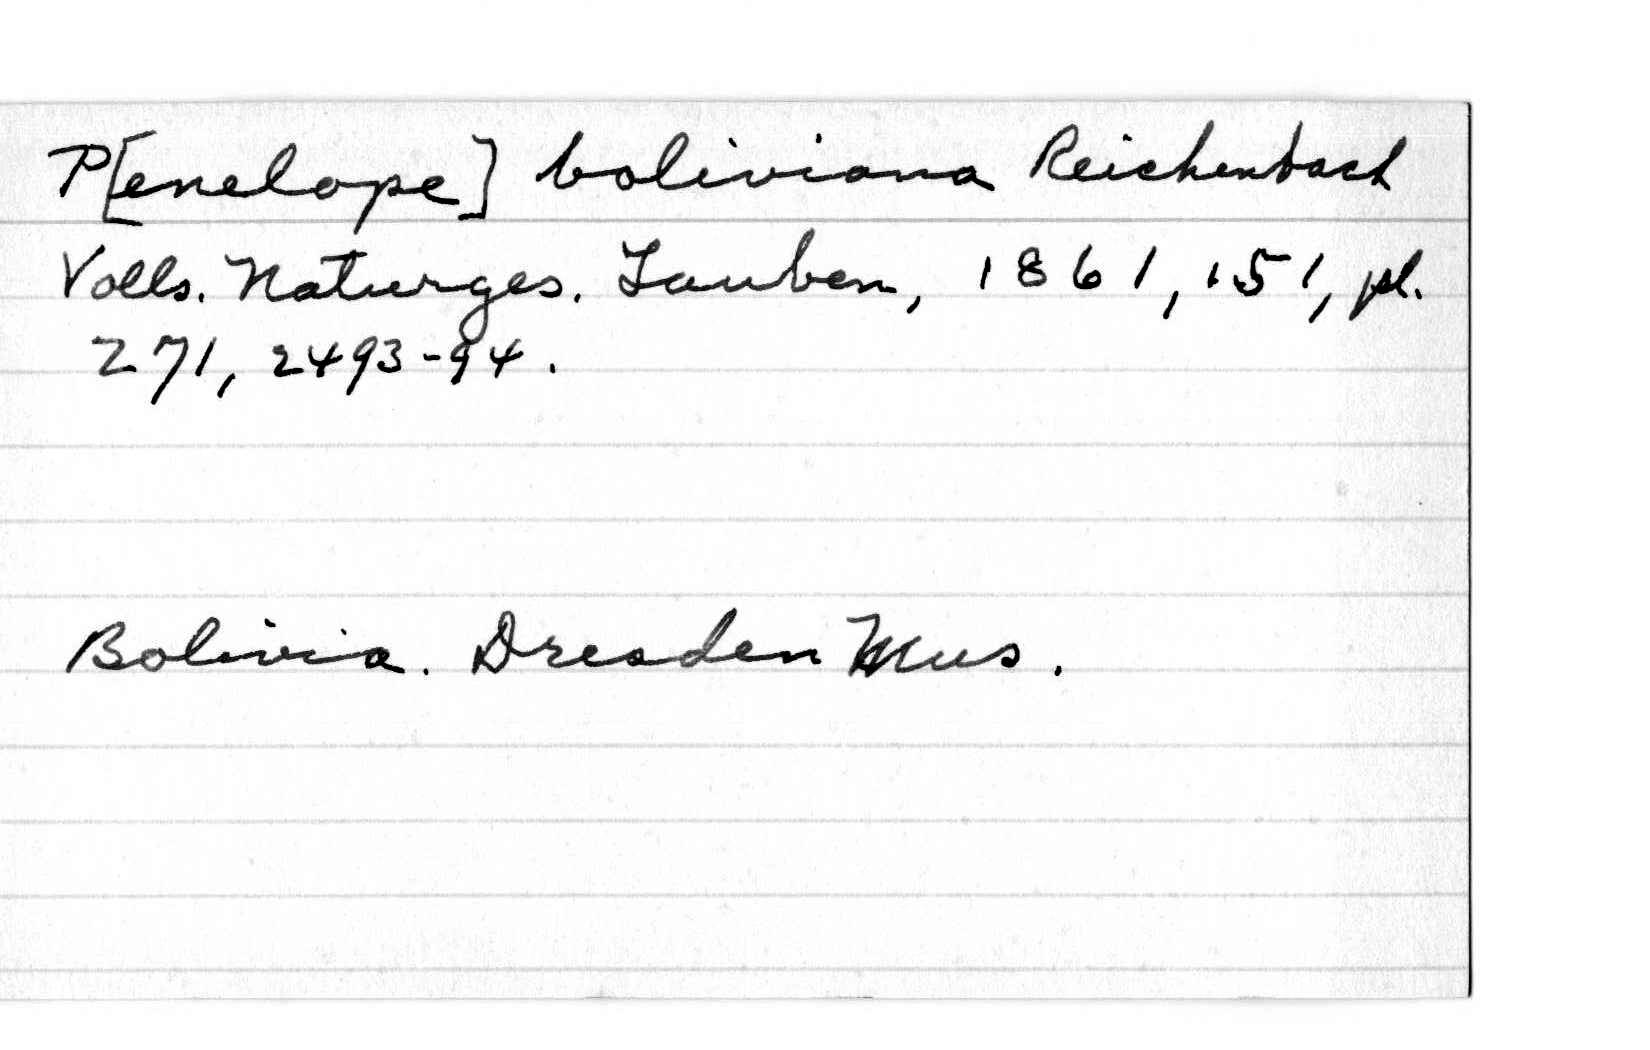 P[enelope] boliviana Reichenbach
Volls. Naturges. Tauben, 1861, 151, pl.
271, 2493-94.
Bolivia. Dresden Mus.